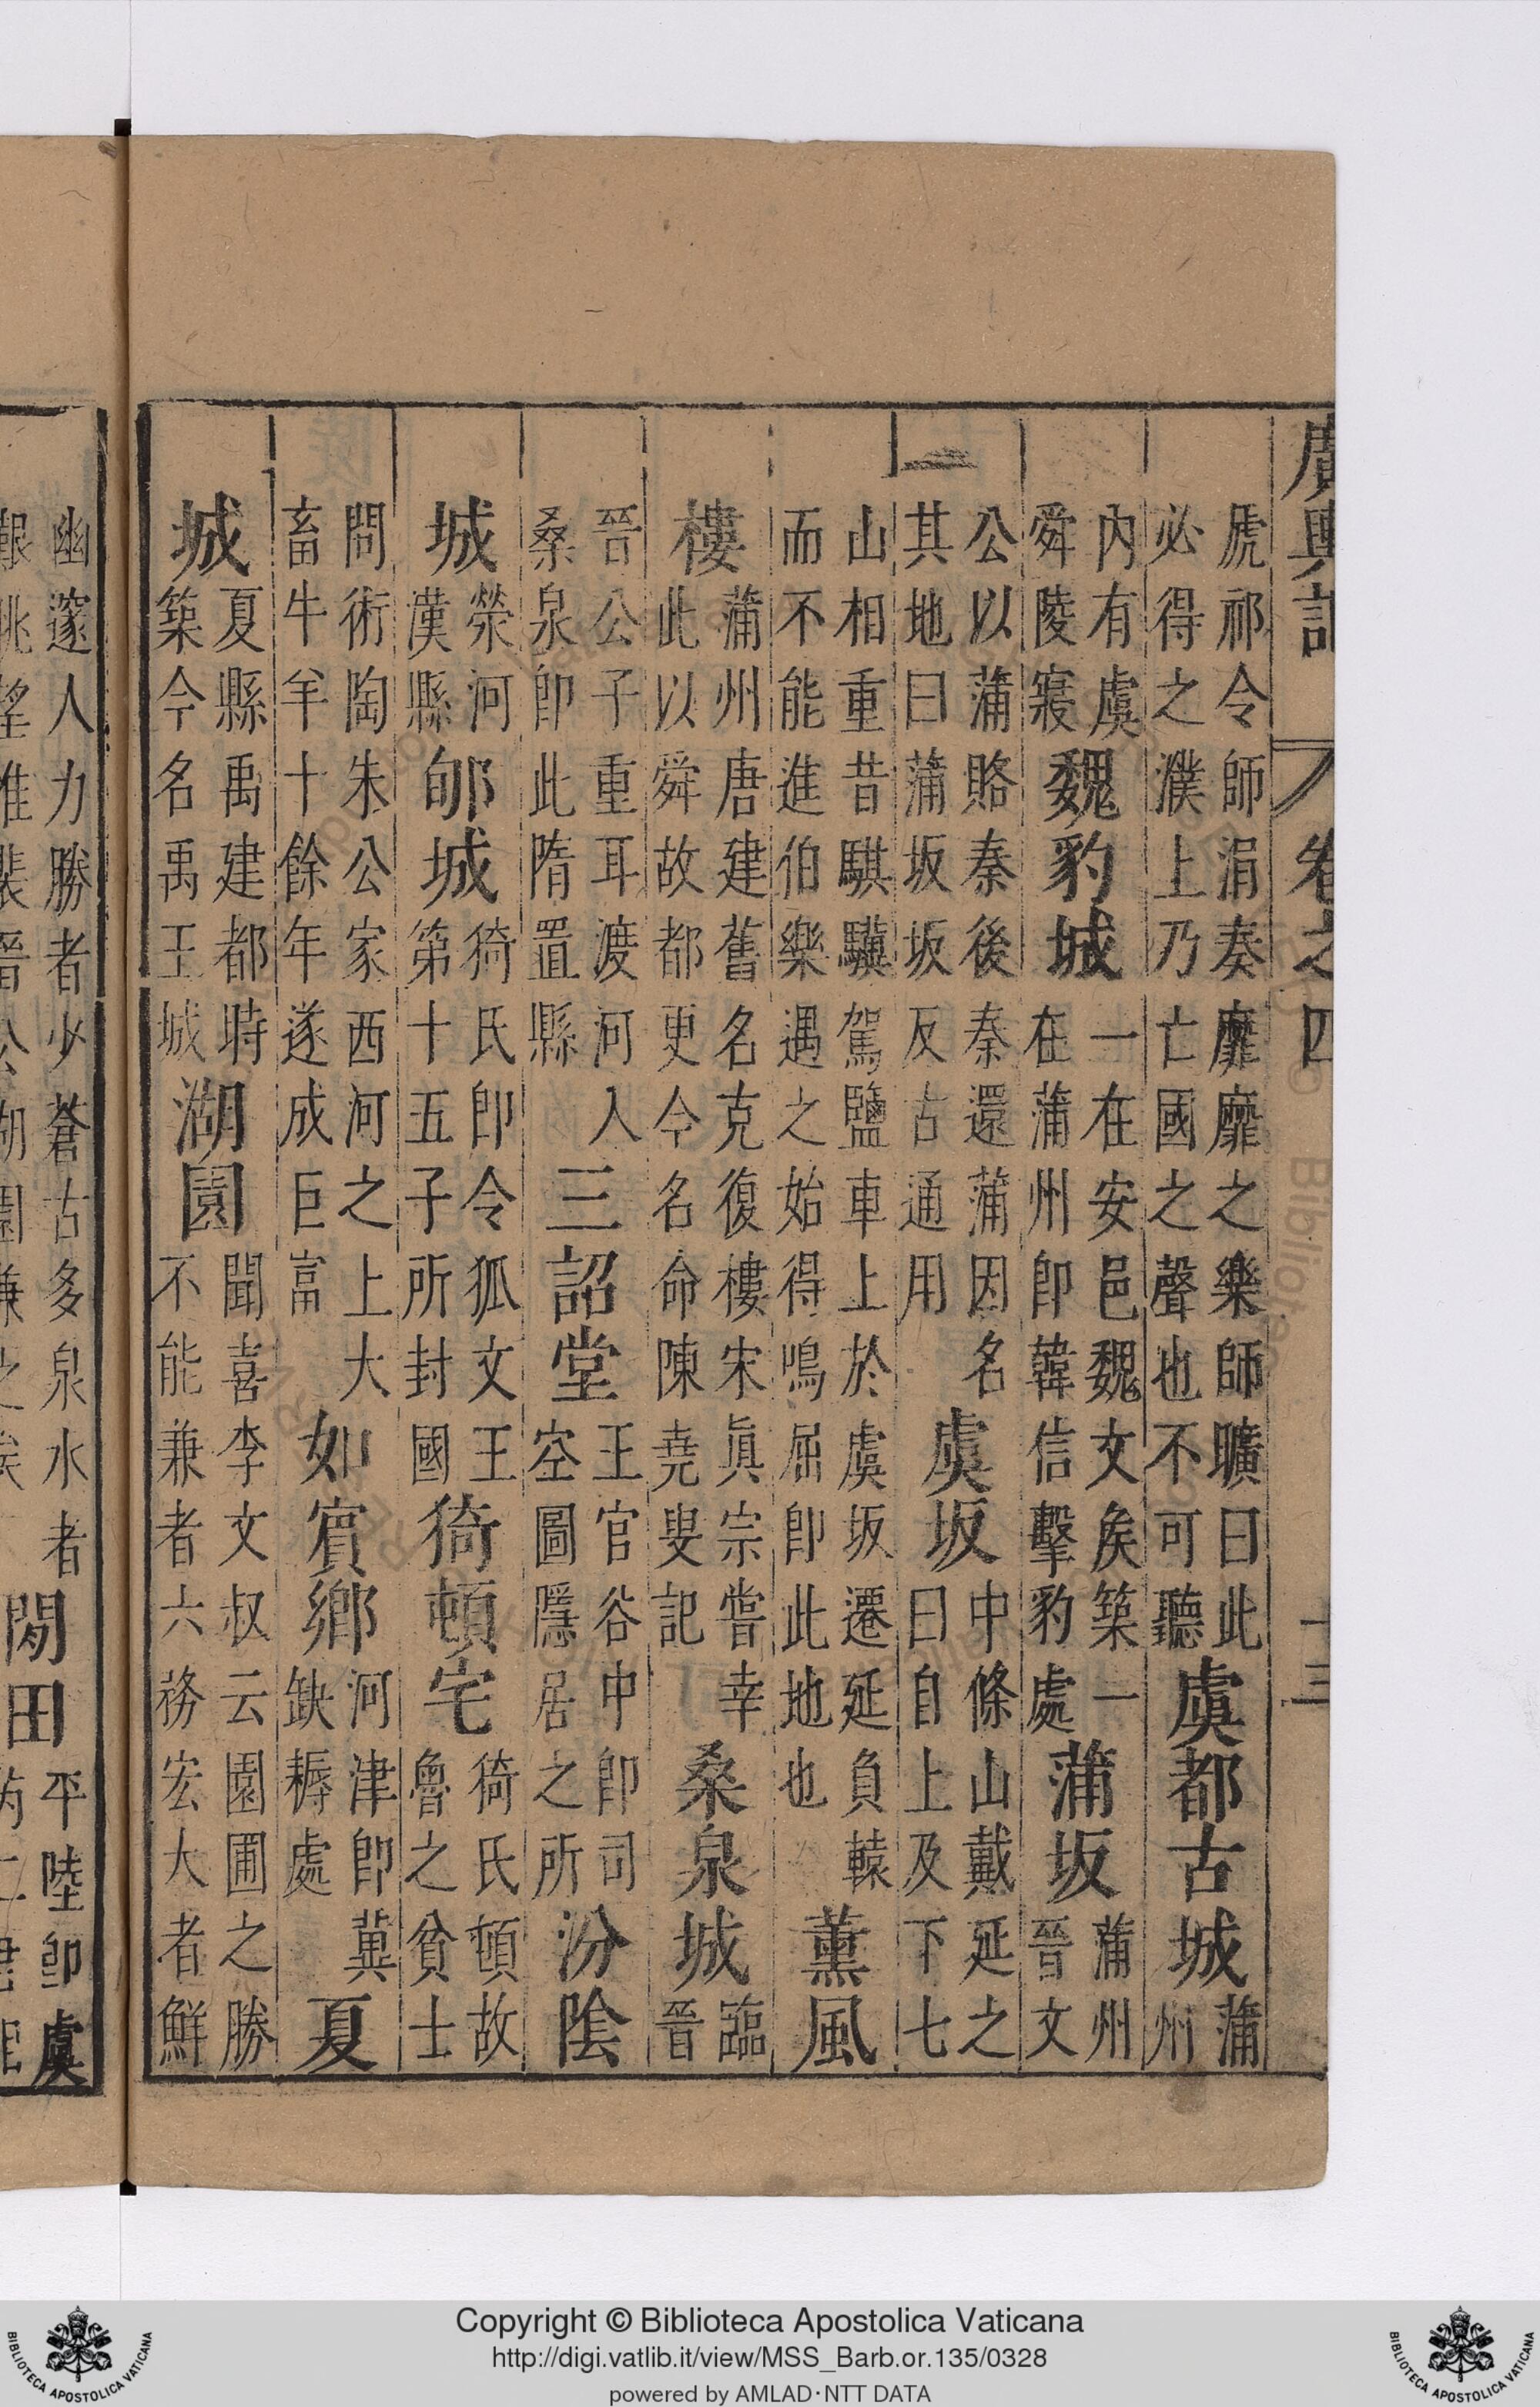 廣輿記 卷之四 十三
虒祁令師涓奏靡靡之樂師曠曰此
必得之濮上乃亡國之聲也不可聽
虞都古城
蒲
州
内有虞
舜陵寢
魏豹城
一在安邑魏文矦築一
在蒲州即韓信擊豹處
蒲坂
蒲州
晉文
公以蒲賂秦後秦還蒲因名
其地曰蒲坂坂反古通用
虞坂
中條山戴延之
曰自上及下七
山相重昔騏驥駕鹽車上於虞坂遷延負轅
而不能進伯樂遇之始得鳴屈即此地也
薰風
樓
蒲州唐建舊名克復樓宋眞宗嘗幸
此以舜故都更今名命陳堯叟記
桑泉城
臨
晉
晉公子重耳渡河入
桑泉即此隋置縣
三詔堂
王官谷中即司
空圖隱居之所
汾陰
城
榮河
漢縣
郇城
猗氏即令狐文王
第十五子所封國
猗頓宅
猗氏頓故
魯之貧士
問術陶朱公家西河之上大
畜牛羊十餘年遂成巨富
如賓鄉
河津即冀
缺耨處
夏
城
夏縣禹建都時
築今名禹王城
湖園
聞喜李文叔云園圃之勝
不能兼者六務宏大者鮮
幽邃人力勝者少蒼古多泉水者
閒田
平陸即虞
Copyright © Biblioteca Apostolica Vaticana
http://digi.vatlib.it/view/MSS_Barb.or.135/0328
powered by AMLAD·NTT DATA
BIBLIOTECA APOSTOLICA VATICANA
BIBLIOTECA APOSTOLICA VATICANA